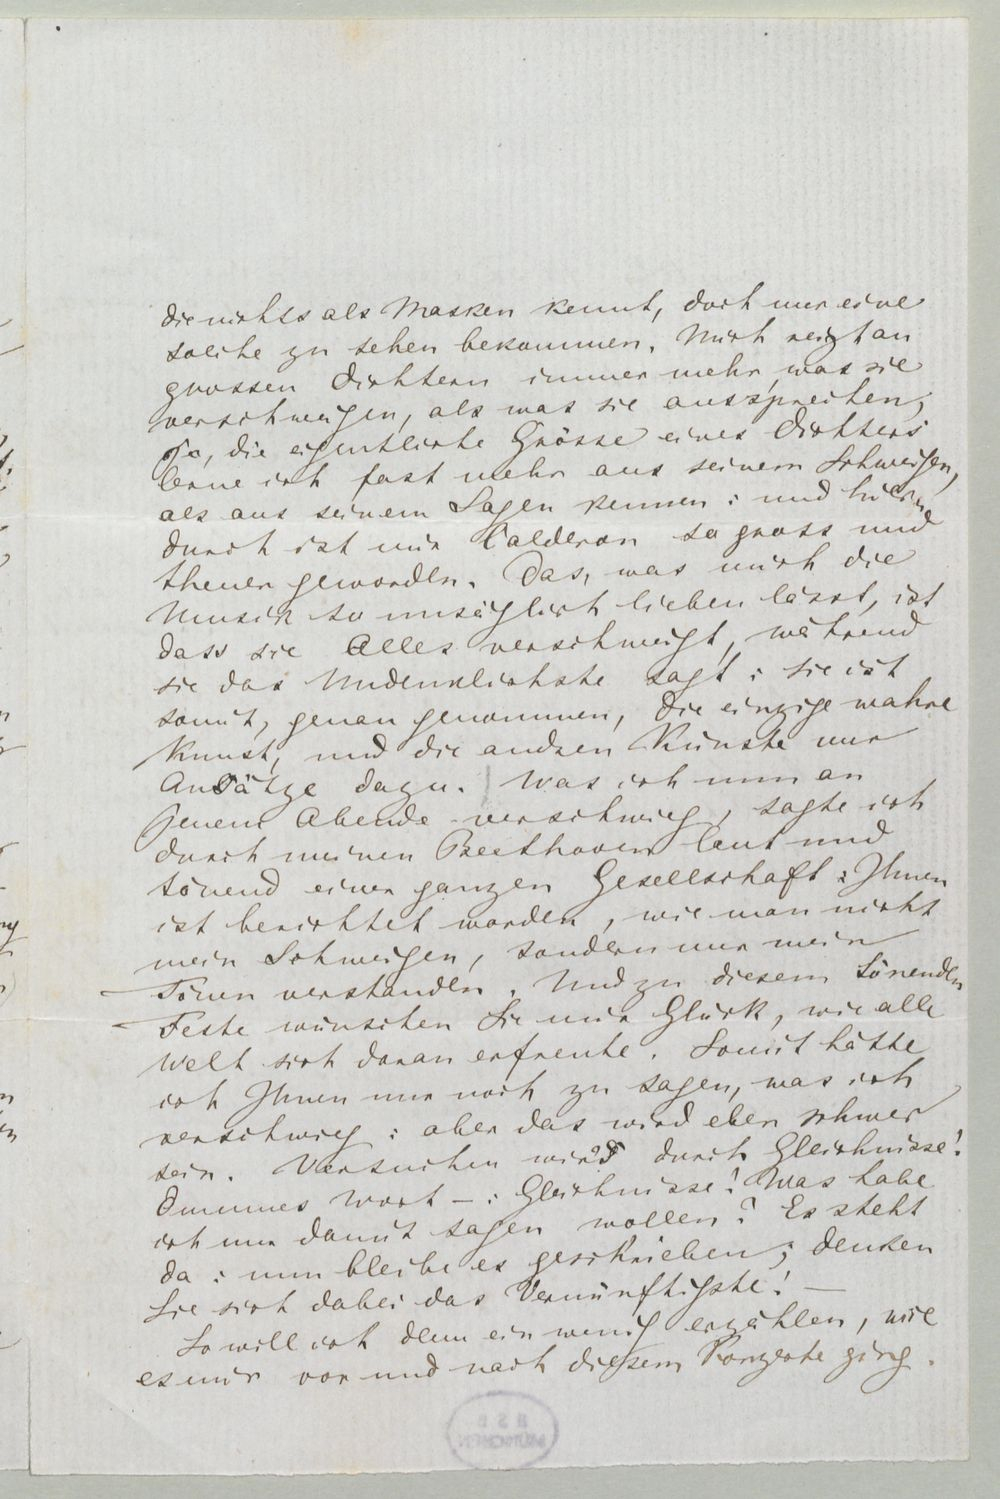 die nichts als Masken kennt, doch nur eine
solche zu sehen bekommen. Mich reizt an
grossen Dichtern immer mehr, was sie
verschweigen, als was sie aussprechen;
Ja, die eigentliche Grösse eines Dichters
lerne ich fast mehr aus seinem Schweigen,
als aus seinem Sagen kennen: und hier-
durch ist mir Calderon so gross und
theuer geworden. Das, was mich die
Musik so unsäglich lieben lässt, ist
dass sie Alles verschweigt, während
sie das Undenklichste sagt: sie ist
somit, genau genommen, die einzige wahre
Kunst, und die andren Künste nur
Ansätze dazu. Was ich nun an
jenem Abende verschwieg, sagte ich
durch meinen Beethoven laut und
tönend einer ganzen Gesellschaft: Ihnen
ist berichtet worden, wie man nicht
mein Schweigen, sondern nur mein
Tönen verstanden. Und zu diesem tönenden
Feste wünschen Sie mir Glück, wie alle
Welt sich daran erfreute. Somit hätte
ich Ihnen nur noch zu sagen, was ich
verschwieg: aber das wird eben schwer
sein. Versuchen wir's durch Gleichnisse!
Dummes Wort –: Gleichnisse! Was habe
ich nur damit sagen wollen? Es steht
da: nun bleibe es geschrieben; denken
Sie sich dabei das Vernünftigste! —
So will ich denn ein wenig erzählen, wie
es mir vor und nach diesem Konzerte ging.